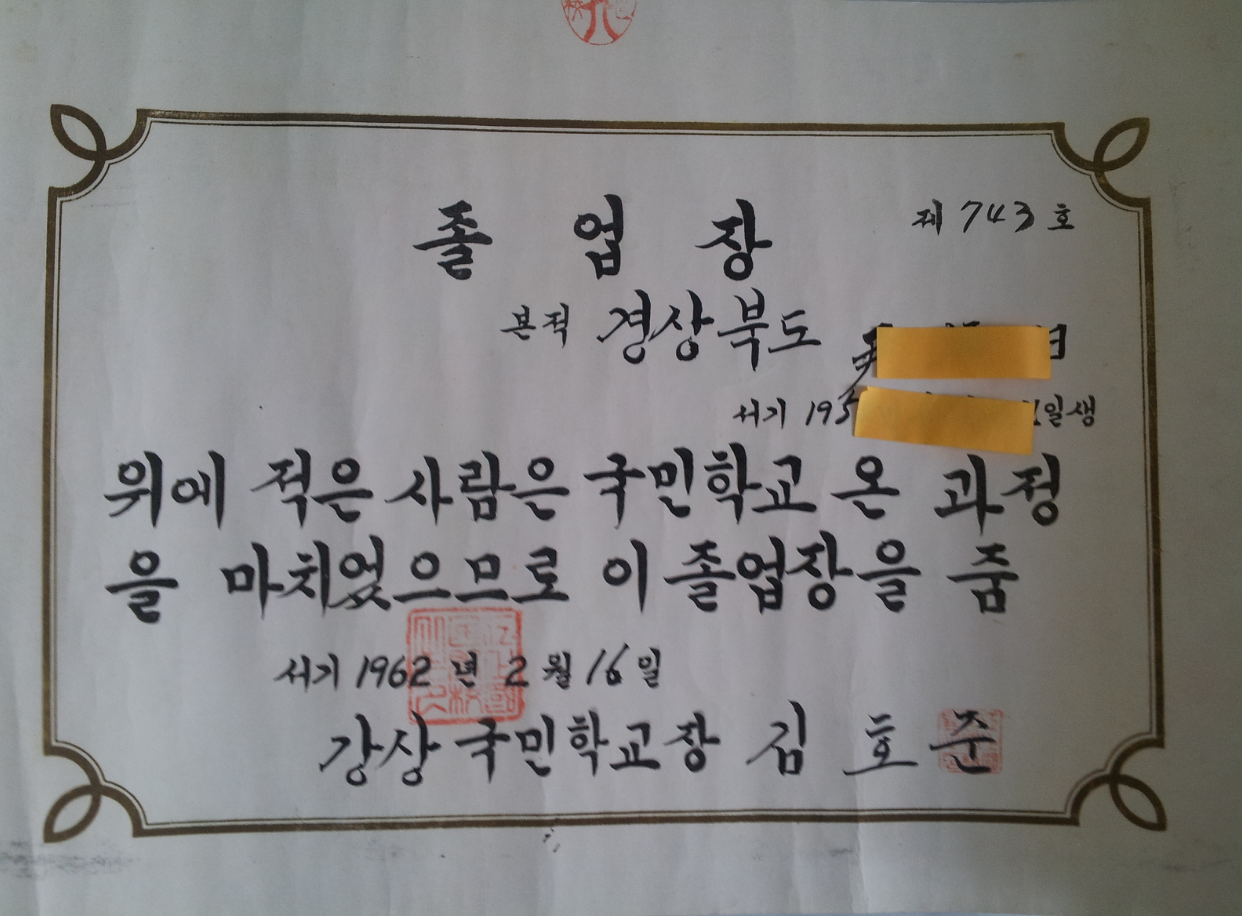 졸업장
제 743 호
본적 경상북도
서기 195 일생
위에 적은 사람은 국민학교 온 과정
을 마치었으므로 이 졸업장을 줌
서기 1962 년 2 월 16 일
강상국민학교장 김호준